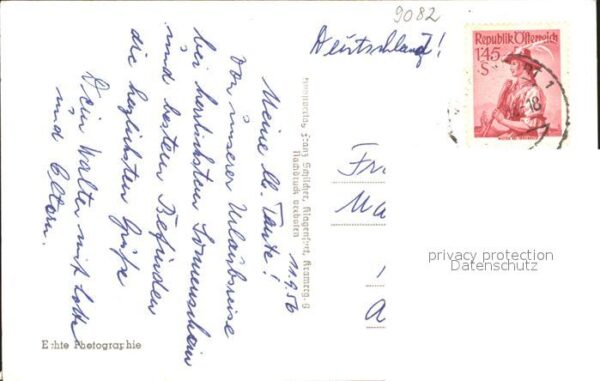 9082
Deutschland!
Republik Österreich
1'45
S
18
11.9.56
Meine lb. Tante!
Von unserer Urlaubsreise
bei herrlichstem Sonnenschein
und bestem Befinden
die herzlichsten Grüße
Dein Walter mit Lotte
und Eltern.
Franz Schilcher, Klagenfurt,
Nachdruck verboten
Fr
Ma
A
privacy protection
Datenschutz
Echte Photographie